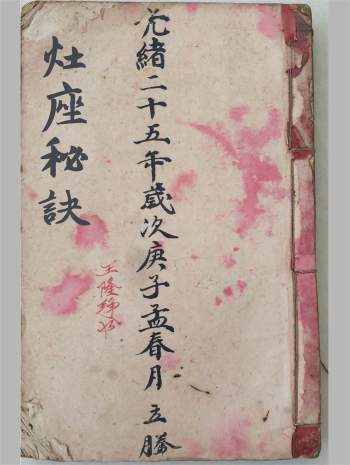 光緒二十五年歲次庚子孟春月立勝
灶座秘訣